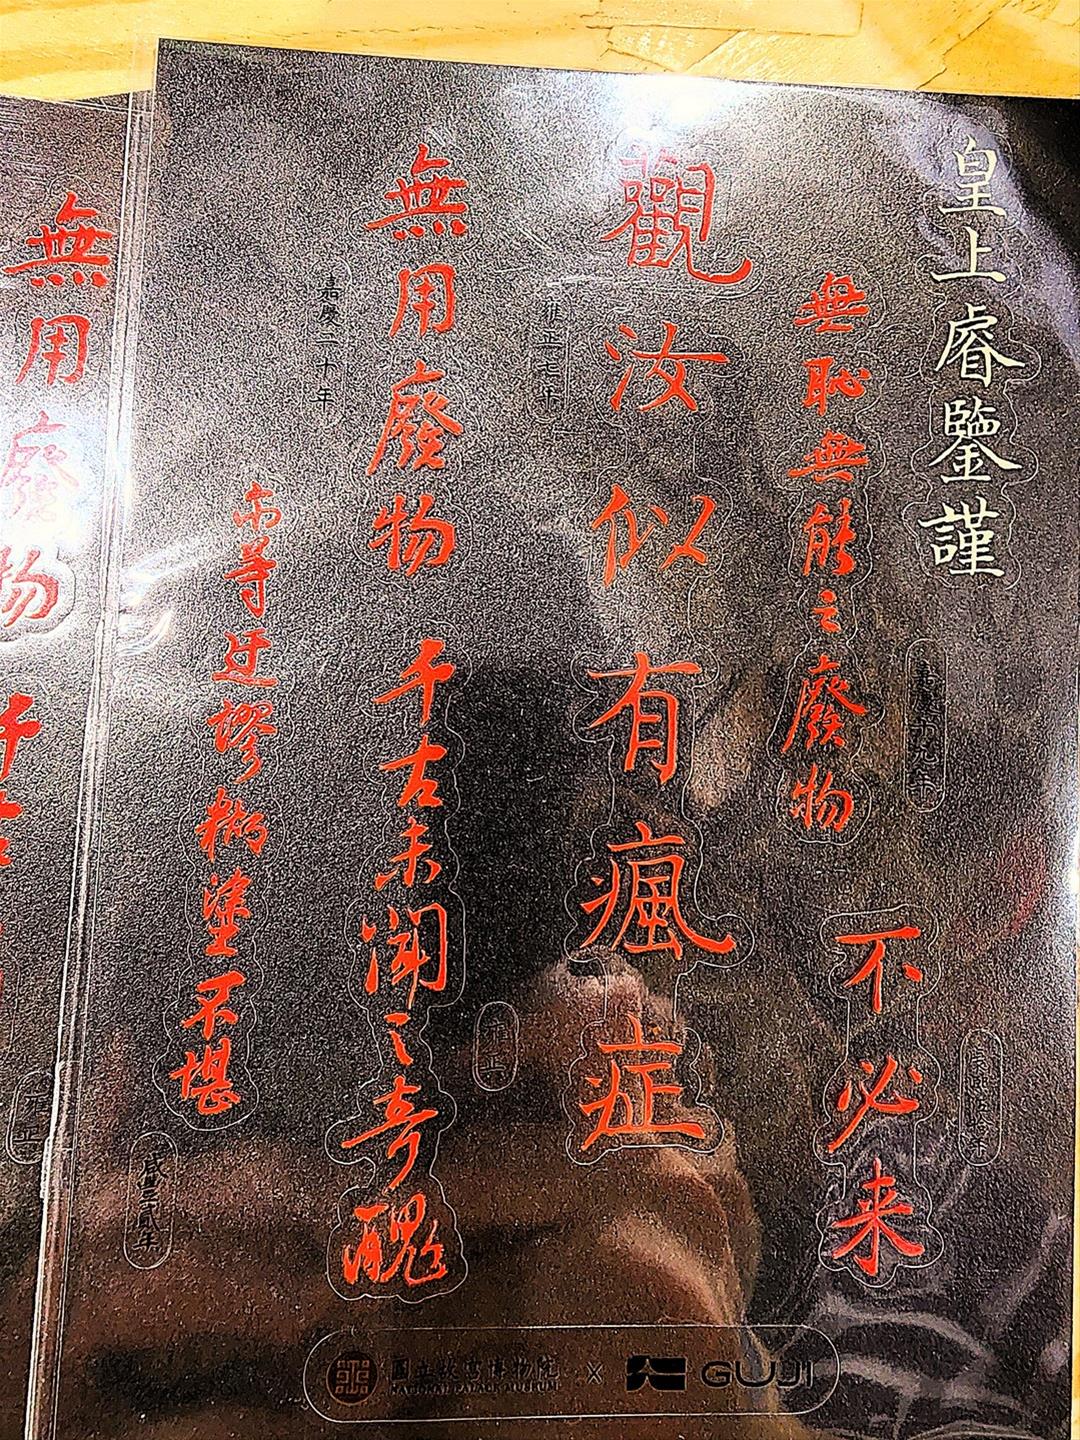 皇上睿鑒謹
無恥無能之廢物
不必来
觀汝似有瘋症
無用廢物
嘉慶二十年
千古未聞之奇醜
尓等迂謬糊塗不堪
咸豐貳年
無用廢物
國立故宮博物院
NATIONAL PALACE MUSEUM
×
GUJI